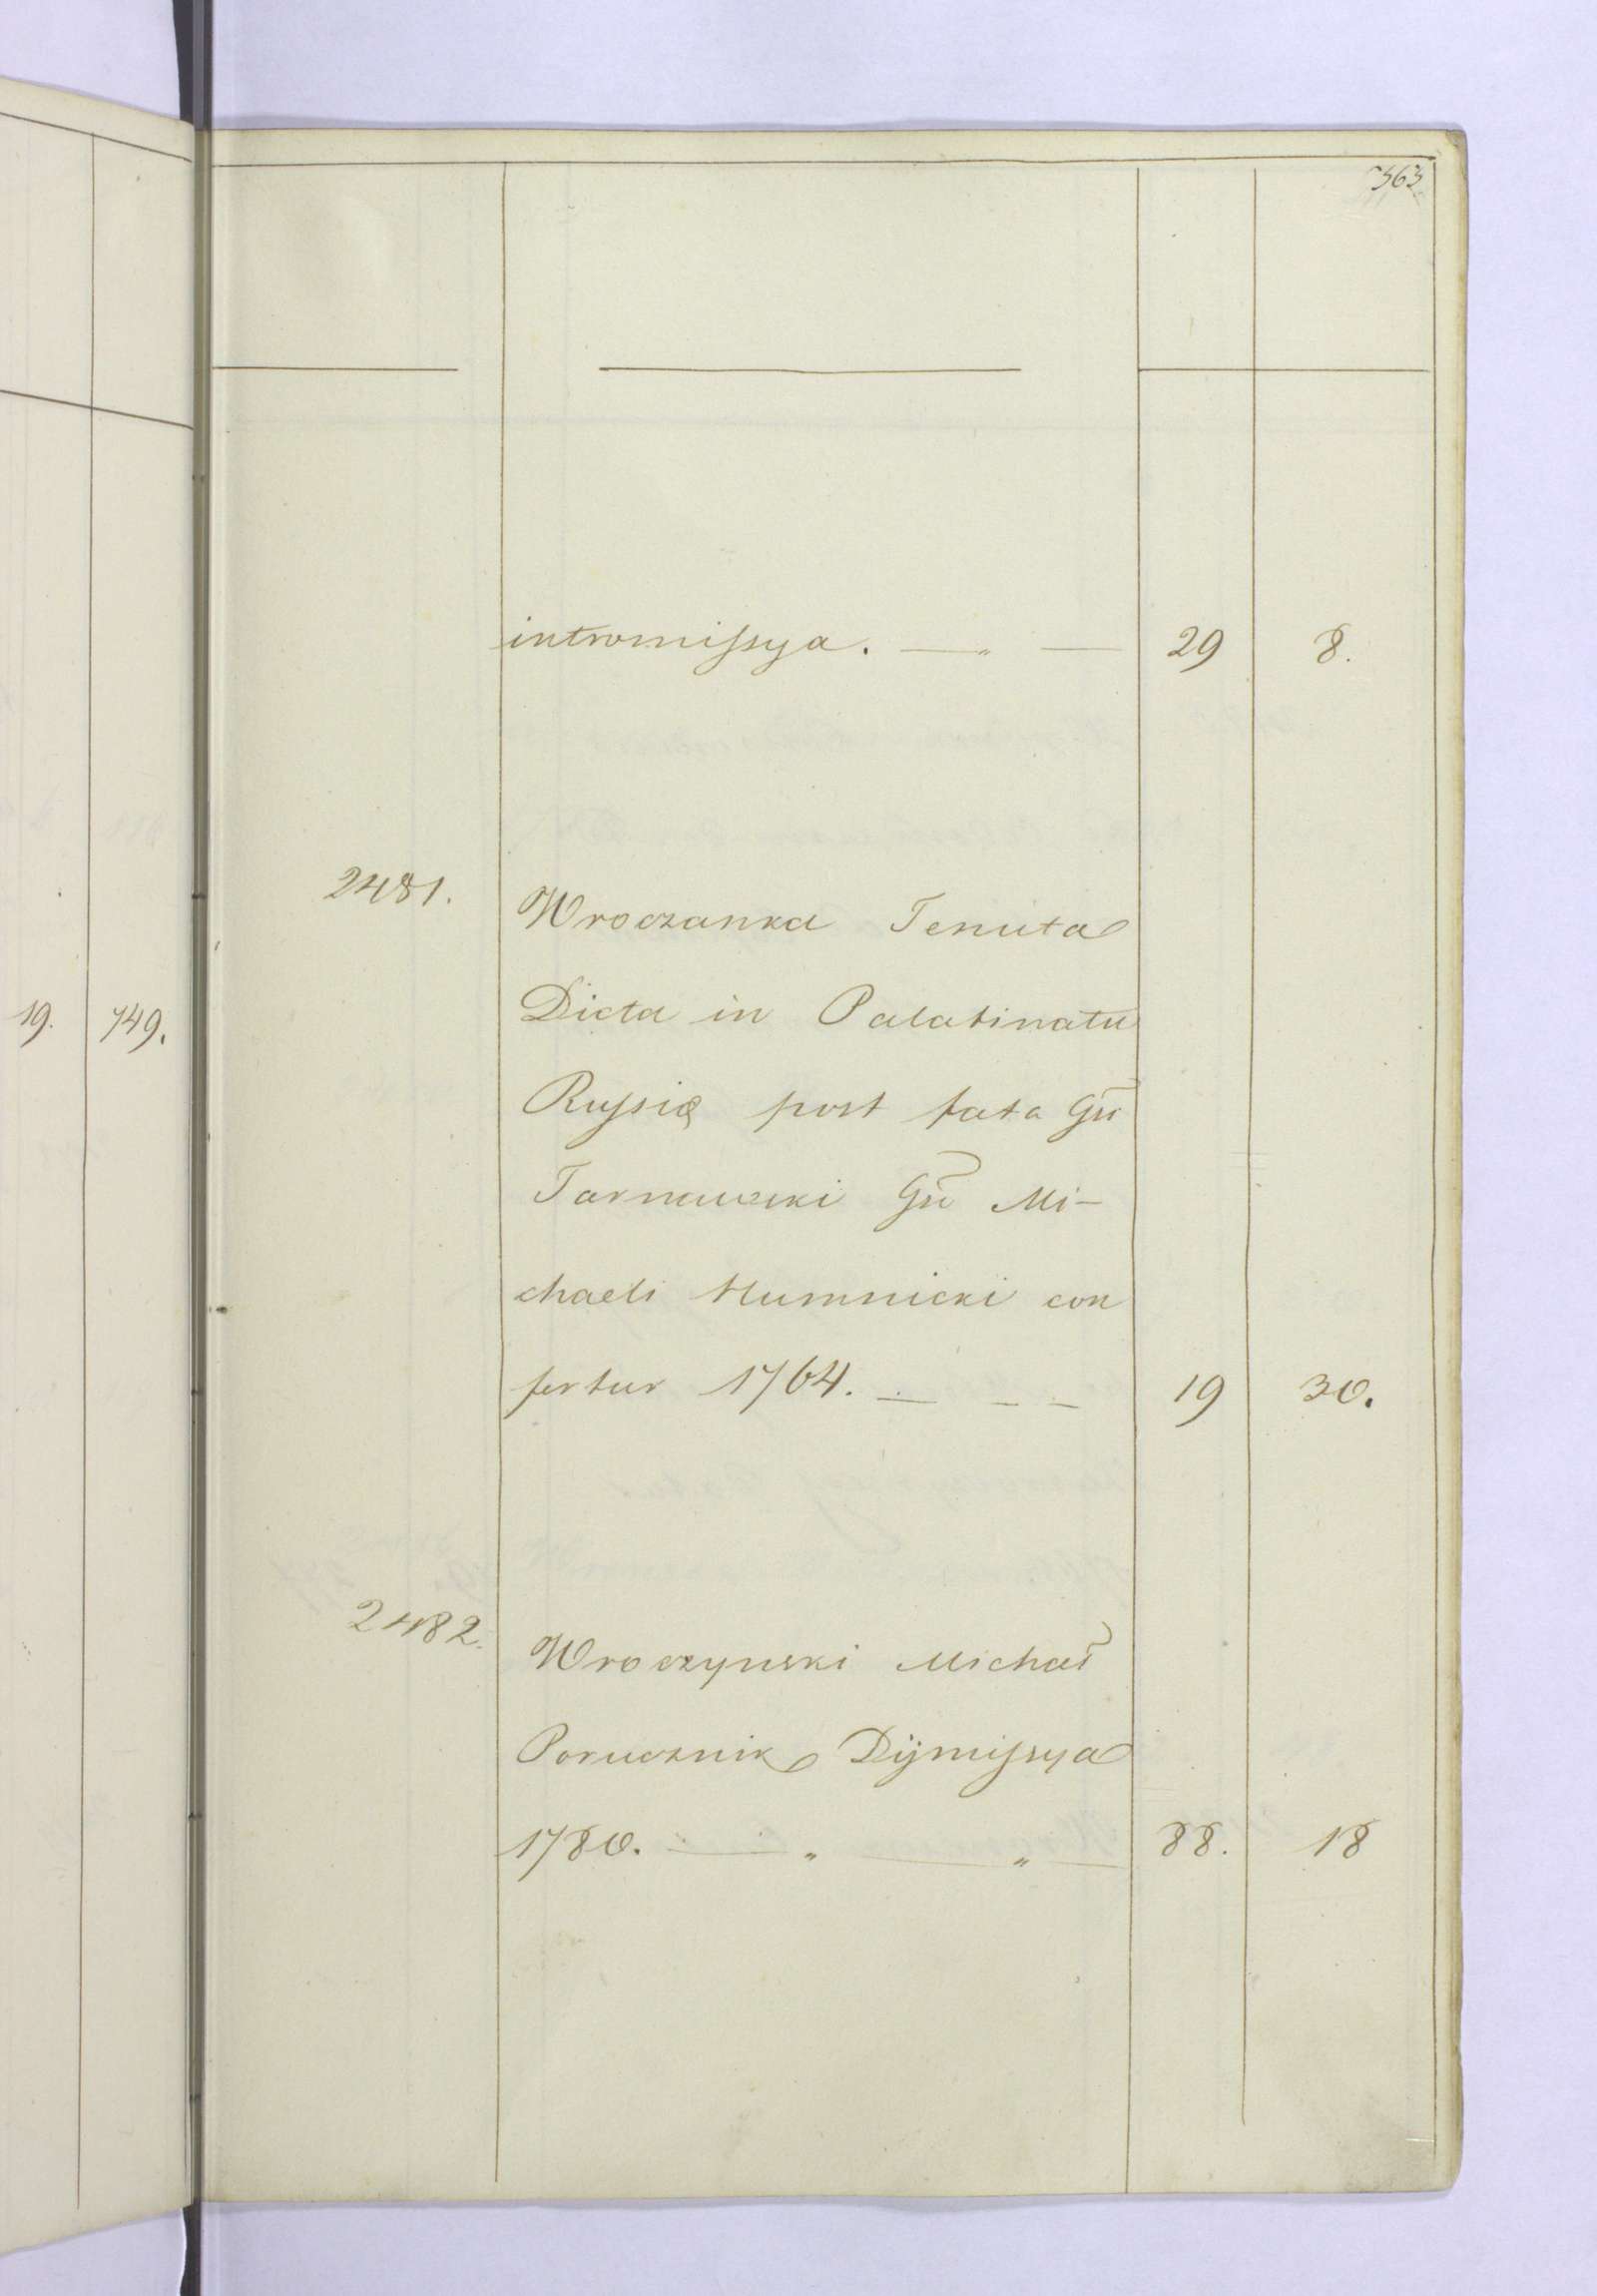 363
intromissya. — „ — 29 8.
2481.
Wroczanka Tenuta
Dicta in Palatinatu
Russię post fata Gsi
Tarnawski Gsi Mi-
chaeli Humnicki con
fertur 1764. — — — 19 30.
2482.
Wroczynski Michał
Porucznik Dijmissya
1780. — „ — „ — 88. 18
19. 749.